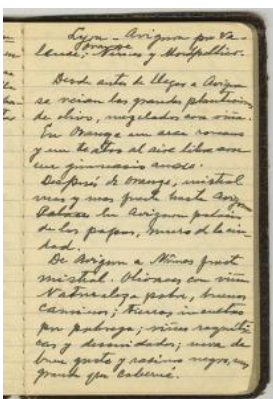 Lyon - Avignon por Va-
lence, Orange, Nimes y Montpellier.
Desde antes de llegar a Avignon
se veian las grandes plantaciones
de olivo, mezclados con viña.
En Orange un arco romano
y un teatro al aire libre con
un gimnasio
Después de Orange, mistral
mas y mas fuerte hasta Avignon
En Avignon palacio
de los papas, muro de la ciu-
dad.
De Avignon a Nimes fuerte
mistral. Olivares con viña
Naturaleza pobre, buenos
caminos; tierras incultas
por pobreza; viñas raquiti-
cas y descuidadas; uva de
buen gusto y racimo negro, mas
grande que cabernet.